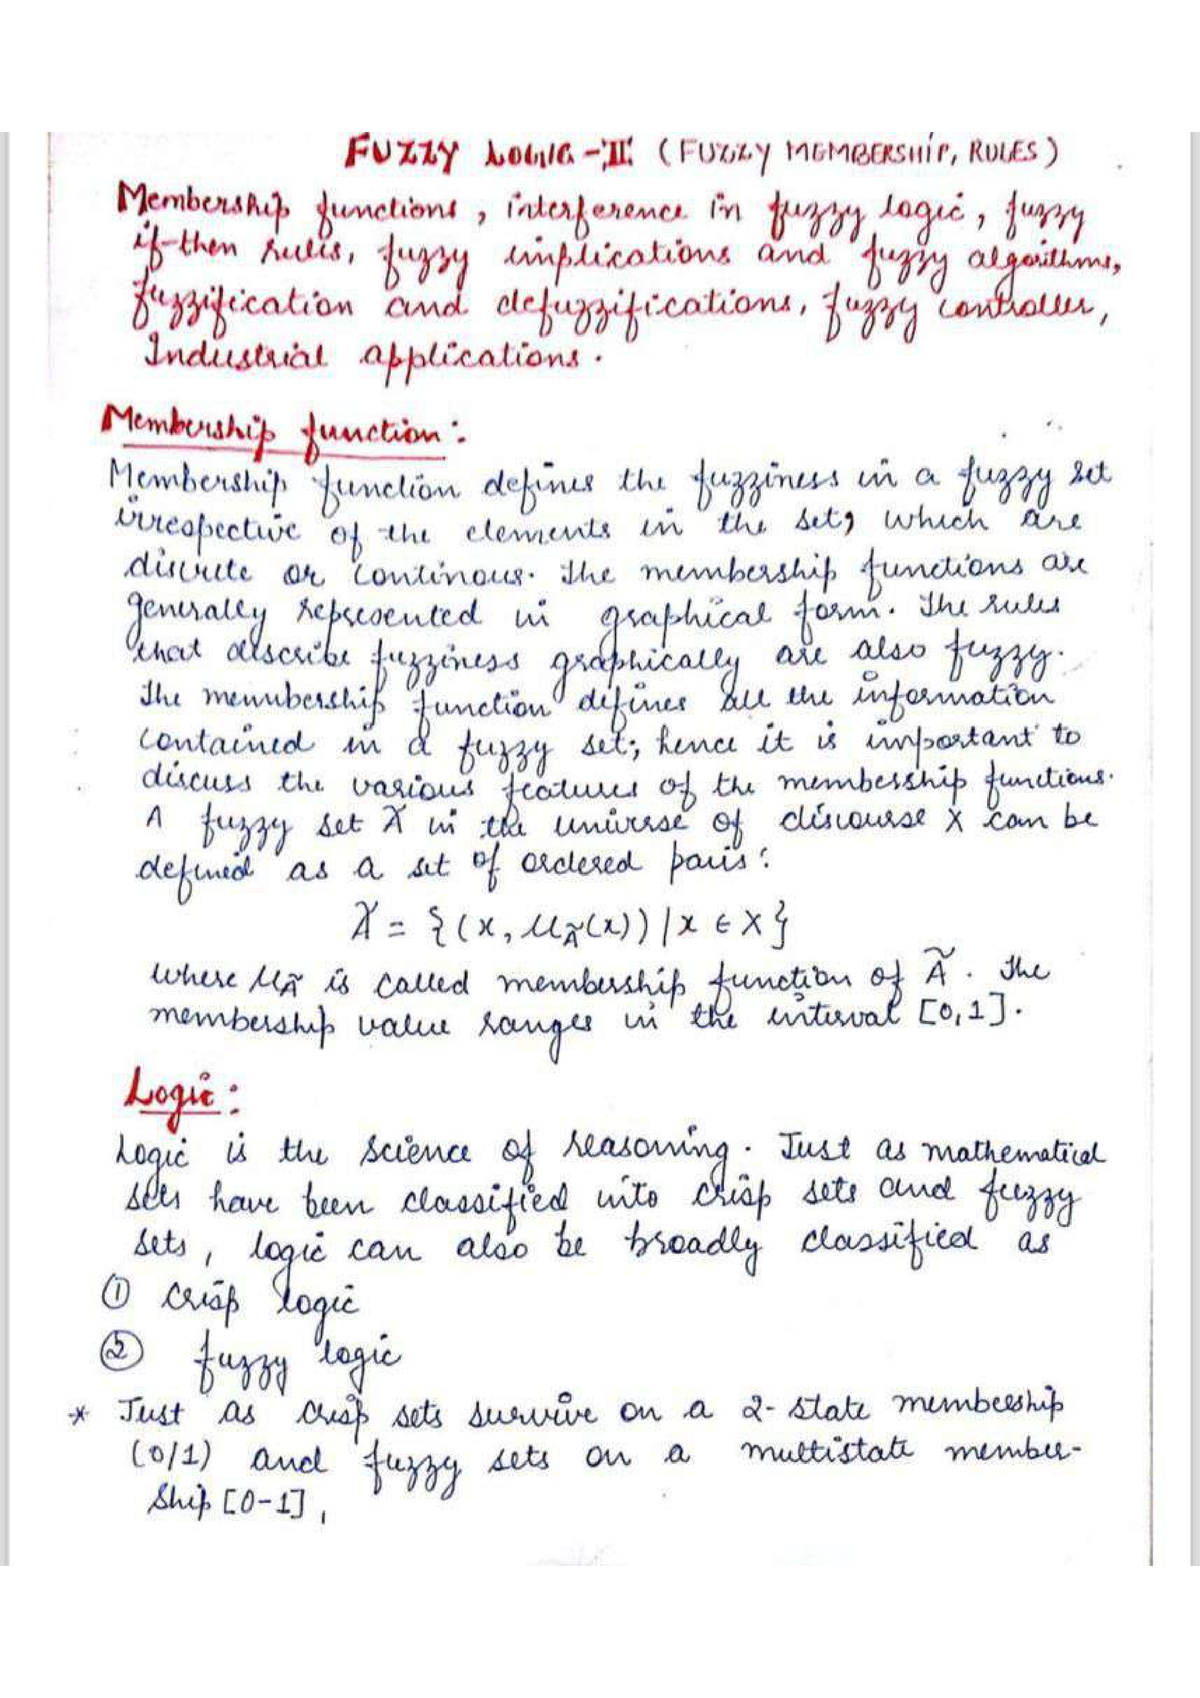 FUZZY LOGIC-II (FUZZY MEMBERSHIP, RULES)
Membership functions, interference in fuzzy logic, fuzzy
if-then rules, fuzzy implications and fuzzy algorithms,
fuzzification and defuzzifications, fuzzy controller,
Industrial applications.
Membership function:
Membership function defines the fuzziness in a fuzzy set
irrespective of the elements in the set, which are
discrete or continous. The membership functions are
generally represented in graphical form. The rules
that describe fuzziness graphically are also fuzzy.
The membership function defines all the information
contained in a fuzzy set; hence it is important to
discuss the various features of the membership functions.
A fuzzy set Ã in the universe of discourse X can be
defined as a set of ordered pairs:
Ã = {(x, μÃ(x)) | x ∈ X}
where μÃ is called membership function of Ã. The
membership value ranges in the interval [0,1].
Logic:
Logic is the science of reasoning. Just as mathematical
sets have been classified into crisp sets and fuzzy
sets, logic can also be broadly classified as
① crisp logic
② fuzzy logic
* Just as crisp sets survive on a 2-state membership
(0/1) and fuzzy sets on a multistate member-
ship [0-1],